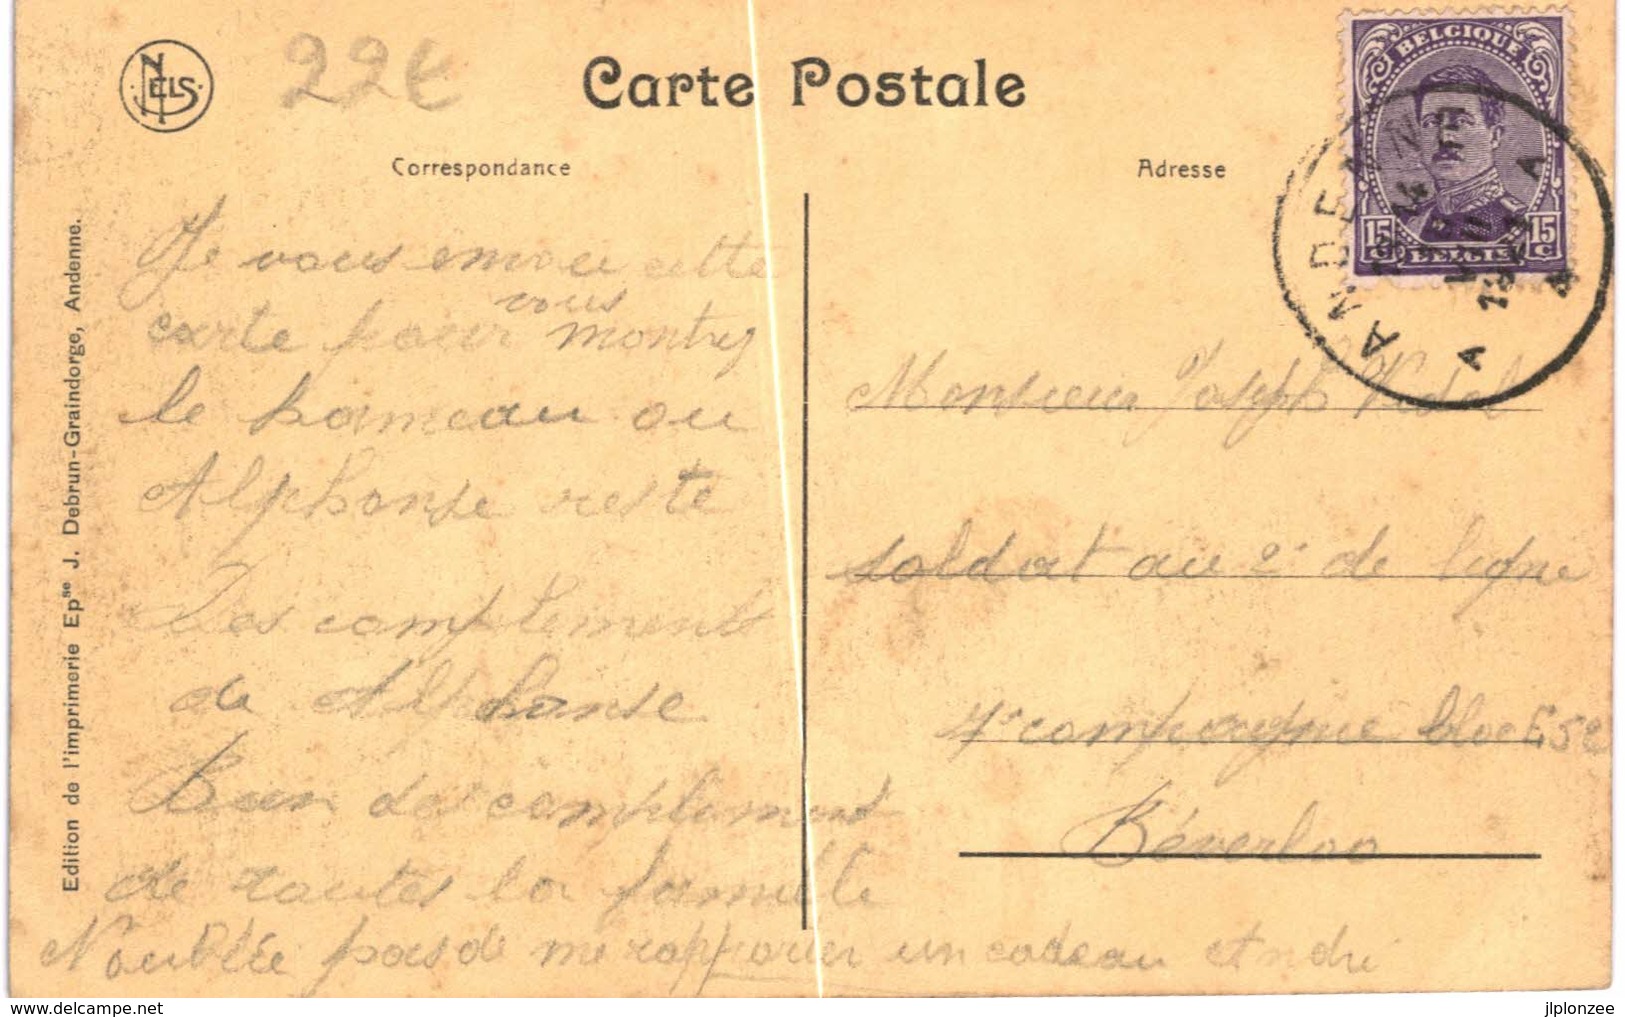 NELS
22€
Carte Postale
Correspondance
Adresse
BELGIQUE
15 C
15 C
BELGIE
ANDENN
A
Edition de l'imprimerie Epse J. Debrun-Graindorge, Andenne.
Je vous envoie cette
carte pour vous montrez
le hameau ou
Alphonse reste
Des complements
de Alphonse
Bien des compliment
de toutes la famille
N'oublée pas de me rapporter un cadeau André
Monsieur Joseph
soldat au 2e de ligne
4e compagnie bloc E 5e
Béverloo
jlplonzee